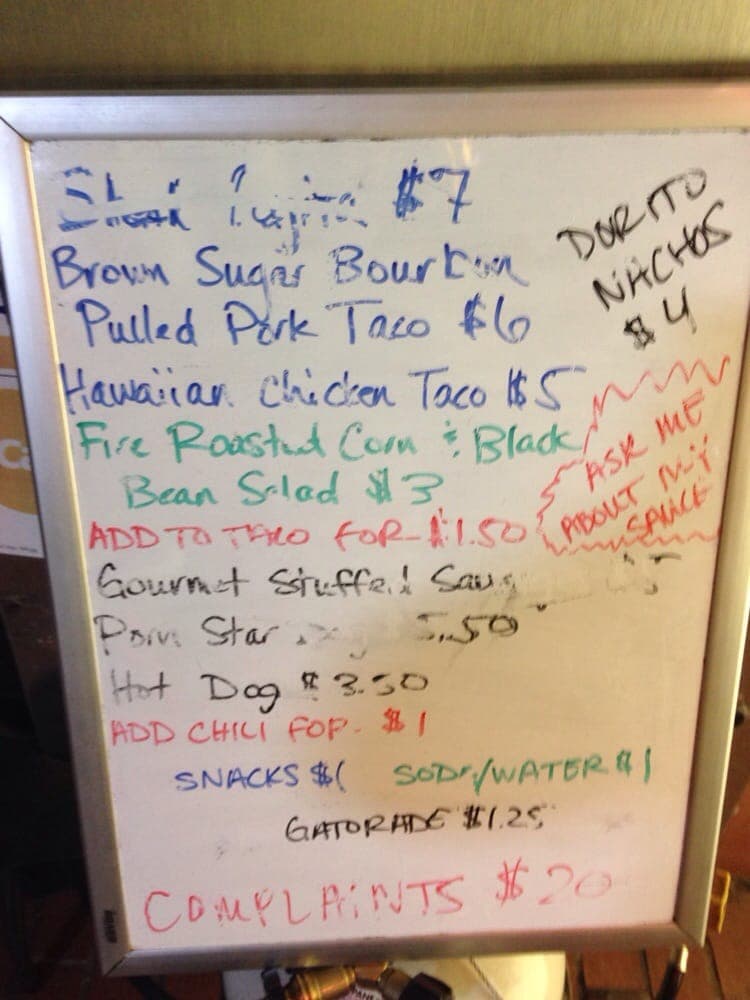 $7
Brown Sugar Bourbon
Pulled Pork Taco $6
Hawaiian Chicken Taco $5
Fire Roasted Corn & Black
Bean Salad $3
ADD TO TACO FOR $1.50
Gourmet Stuffed
Porn Star 5.50
Hot Dog $3.50
ADD CHILI FOR $1
SNACKS $1 SODA/WATER $1
GATORADE $1.25
COMPLAINTS $20
DORITO
NACHOS
$4
ASK ME
ABOUT MY
SAUCE